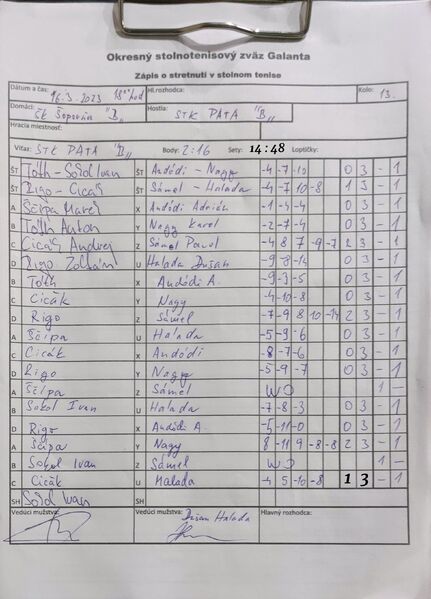 Okresný stolnotenisový zväz Galanta
Zápis o stretnutí v stolnom tenise
Dátum a čas: 16.3.2023 18⁰⁰ hod Hl.rozhodca: Kolo: 13.
Domáci: ŠK Šoporňa "B" Hostia: STK PATA "B"
Hracia miestnosť:
Víťaz: STK PATA "B" Body: 2:16 Sety: 14:48 Loptičky:
ŠT Tóth - Sokol Ivan ŠT Andódi - Nagy -4 -7 -10 0 3 - 1
ŠT Rigo - Cicák ŠT Sámel - Halada -4 -7 10 -8 1 3 - 1
A Ščipa Marek X Andódi Adrián -1 -4 -4 0 3 - 1
B Tóth Anton Y Nagy Karel -2 -7 -4 0 3 - 1
C Cicák Andrej Z Sámel Pavol -4 8 7 -9 -7 2 3 - 1
D Rigo Zoltán U Halada Dušan -9 -8 -14 0 3 - 1
B Tóth X Andódi A. -9 -3 -5 0 3 - 1
C Cicák Y Nagy -4 -10 -8 0 3 - 1
D Rigo Z Sámel -7 -9 8 10 -14 2 3 - 1
A Ščipa U Halada -5 -9 -6 0 3 - 1
C Cicák X Andódi -8 -7 -6 0 3 - 1
D Rigo Y Nagy -5 -9 -7 0 3 - 1
A Ščipa Z Sámel WO 1 -
B Sokol Ivan U Halada -7 -8 -3 0 3 - 1
D Rigo X Andódi A. -5 -11 -10 0 3 - 1
A Ščipa Y Nagy 8 -11 9 -8 -8 2 3 - 1
B Sokol Ivan Z Sámel WO 1 -
C Cicák U Halada -4 5 -10 -8 1 3 - 1
SH Sokol Ivan SH
Vedúci mužstva: Vedúci mužstva: Dušan Halada Hlavný rozhodca: